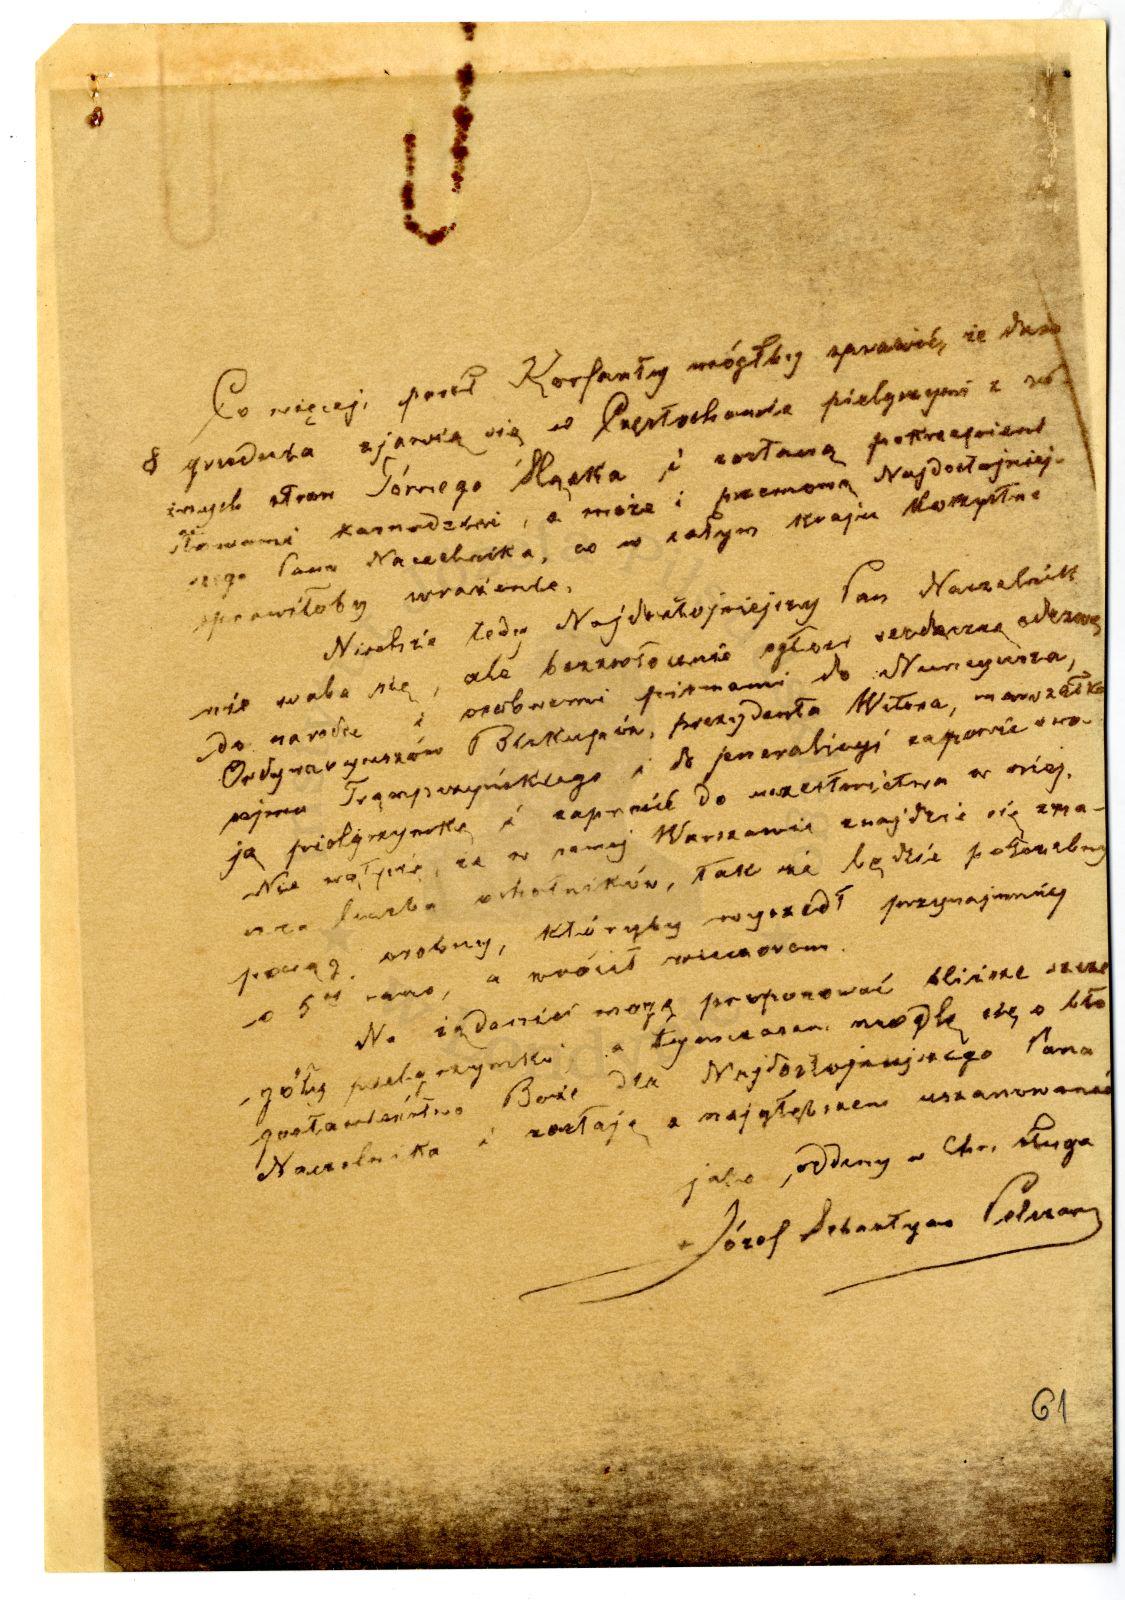 Co więcej, poseł Korfanty mógłby sprawić, że dnia
8 grudnia zjawią się w Częstochowie pielgrzymi z ró-
żnych stron Górnego Śląska i zostaną pokrzepieni
słowami kaznodziei, a może i przemową Najdostojniej-
szego Pana Naczelnika, co w całym kraju korzystne
sprawiłoby wrażenie.
Niechże tedy Najdostojniejszy Pan Naczelnik
nie waha się, ale bezzwłocznie ogłosi serdeczną odezwę
do narodu i osobnemi pismami do Nuncyusza,
Ordynaryuszów Biskupów, prezydenta Witosa, marszałka
sejmu Trąmpczyńskiego i do jeneralicyi zapowie swo-
ją pielgrzymkę i zaprosi do uczestnictwa w niej.
Nie wątpię, że w samej Warszawie znajdzie się zna-
czna liczba ochotników, tak że będzie potrzebny
pociąg osobny, któryby wyszedł przynajmniej
o 5tej rano, a wrócił wieczorem.
Na żądanie mogę proponować bliższe szcze-
góły pielgrzymki, a tymczasem modlę się o bło-
gosławieństwo Boże dla Najdostojniejszego Pana
Naczelnika i zostaję z najgłębszem uszanowaniem
jako oddany w Chr. sługa
+ Józef Sebastyan Pelczar
61